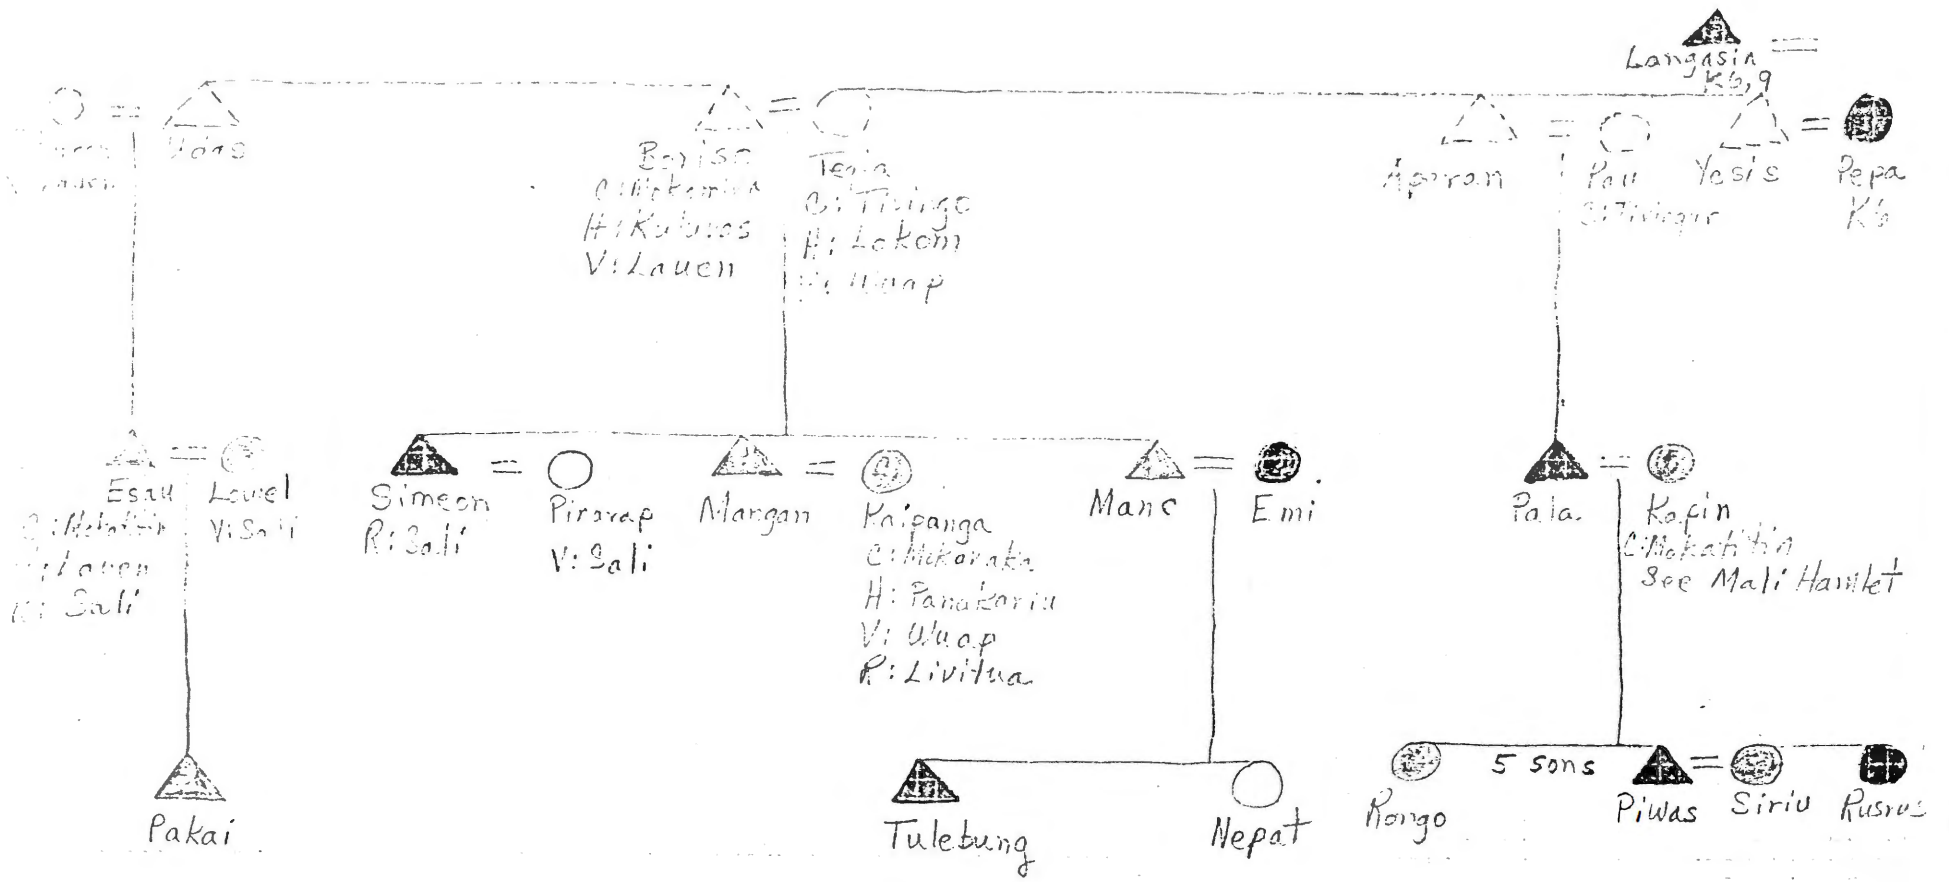 Langasin
K6,9
Boriso
H: Kuluvos
V: Lauen
Tegia
C: Tivingo
H: Lokom
V: Wuap
Aparan
Pau
Yesis
Pepa
K6
Esau
H: Lauen
R: Sali
Lowel
V: Sali
Simeon
R: Sali
Piravap
V: Sali
Mangan
Kaipanga
C: Mokaraka
H: Panakariu
V: Wuap
R: Livitua
Manc
Emi
Pala
Kafin
C: Mokatitin
See Mali Hamlet
Pakai
Tulebung
Nepat
Rongo
5 sons
Piwas
Siriu
Rusrus